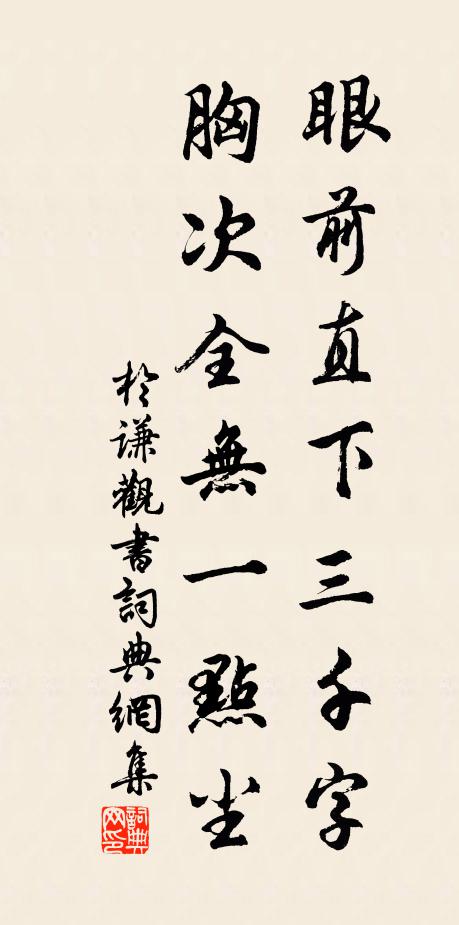 眼前直下三千字
胸次全無一點尘
於謙觀書詞典網集
詞典网印